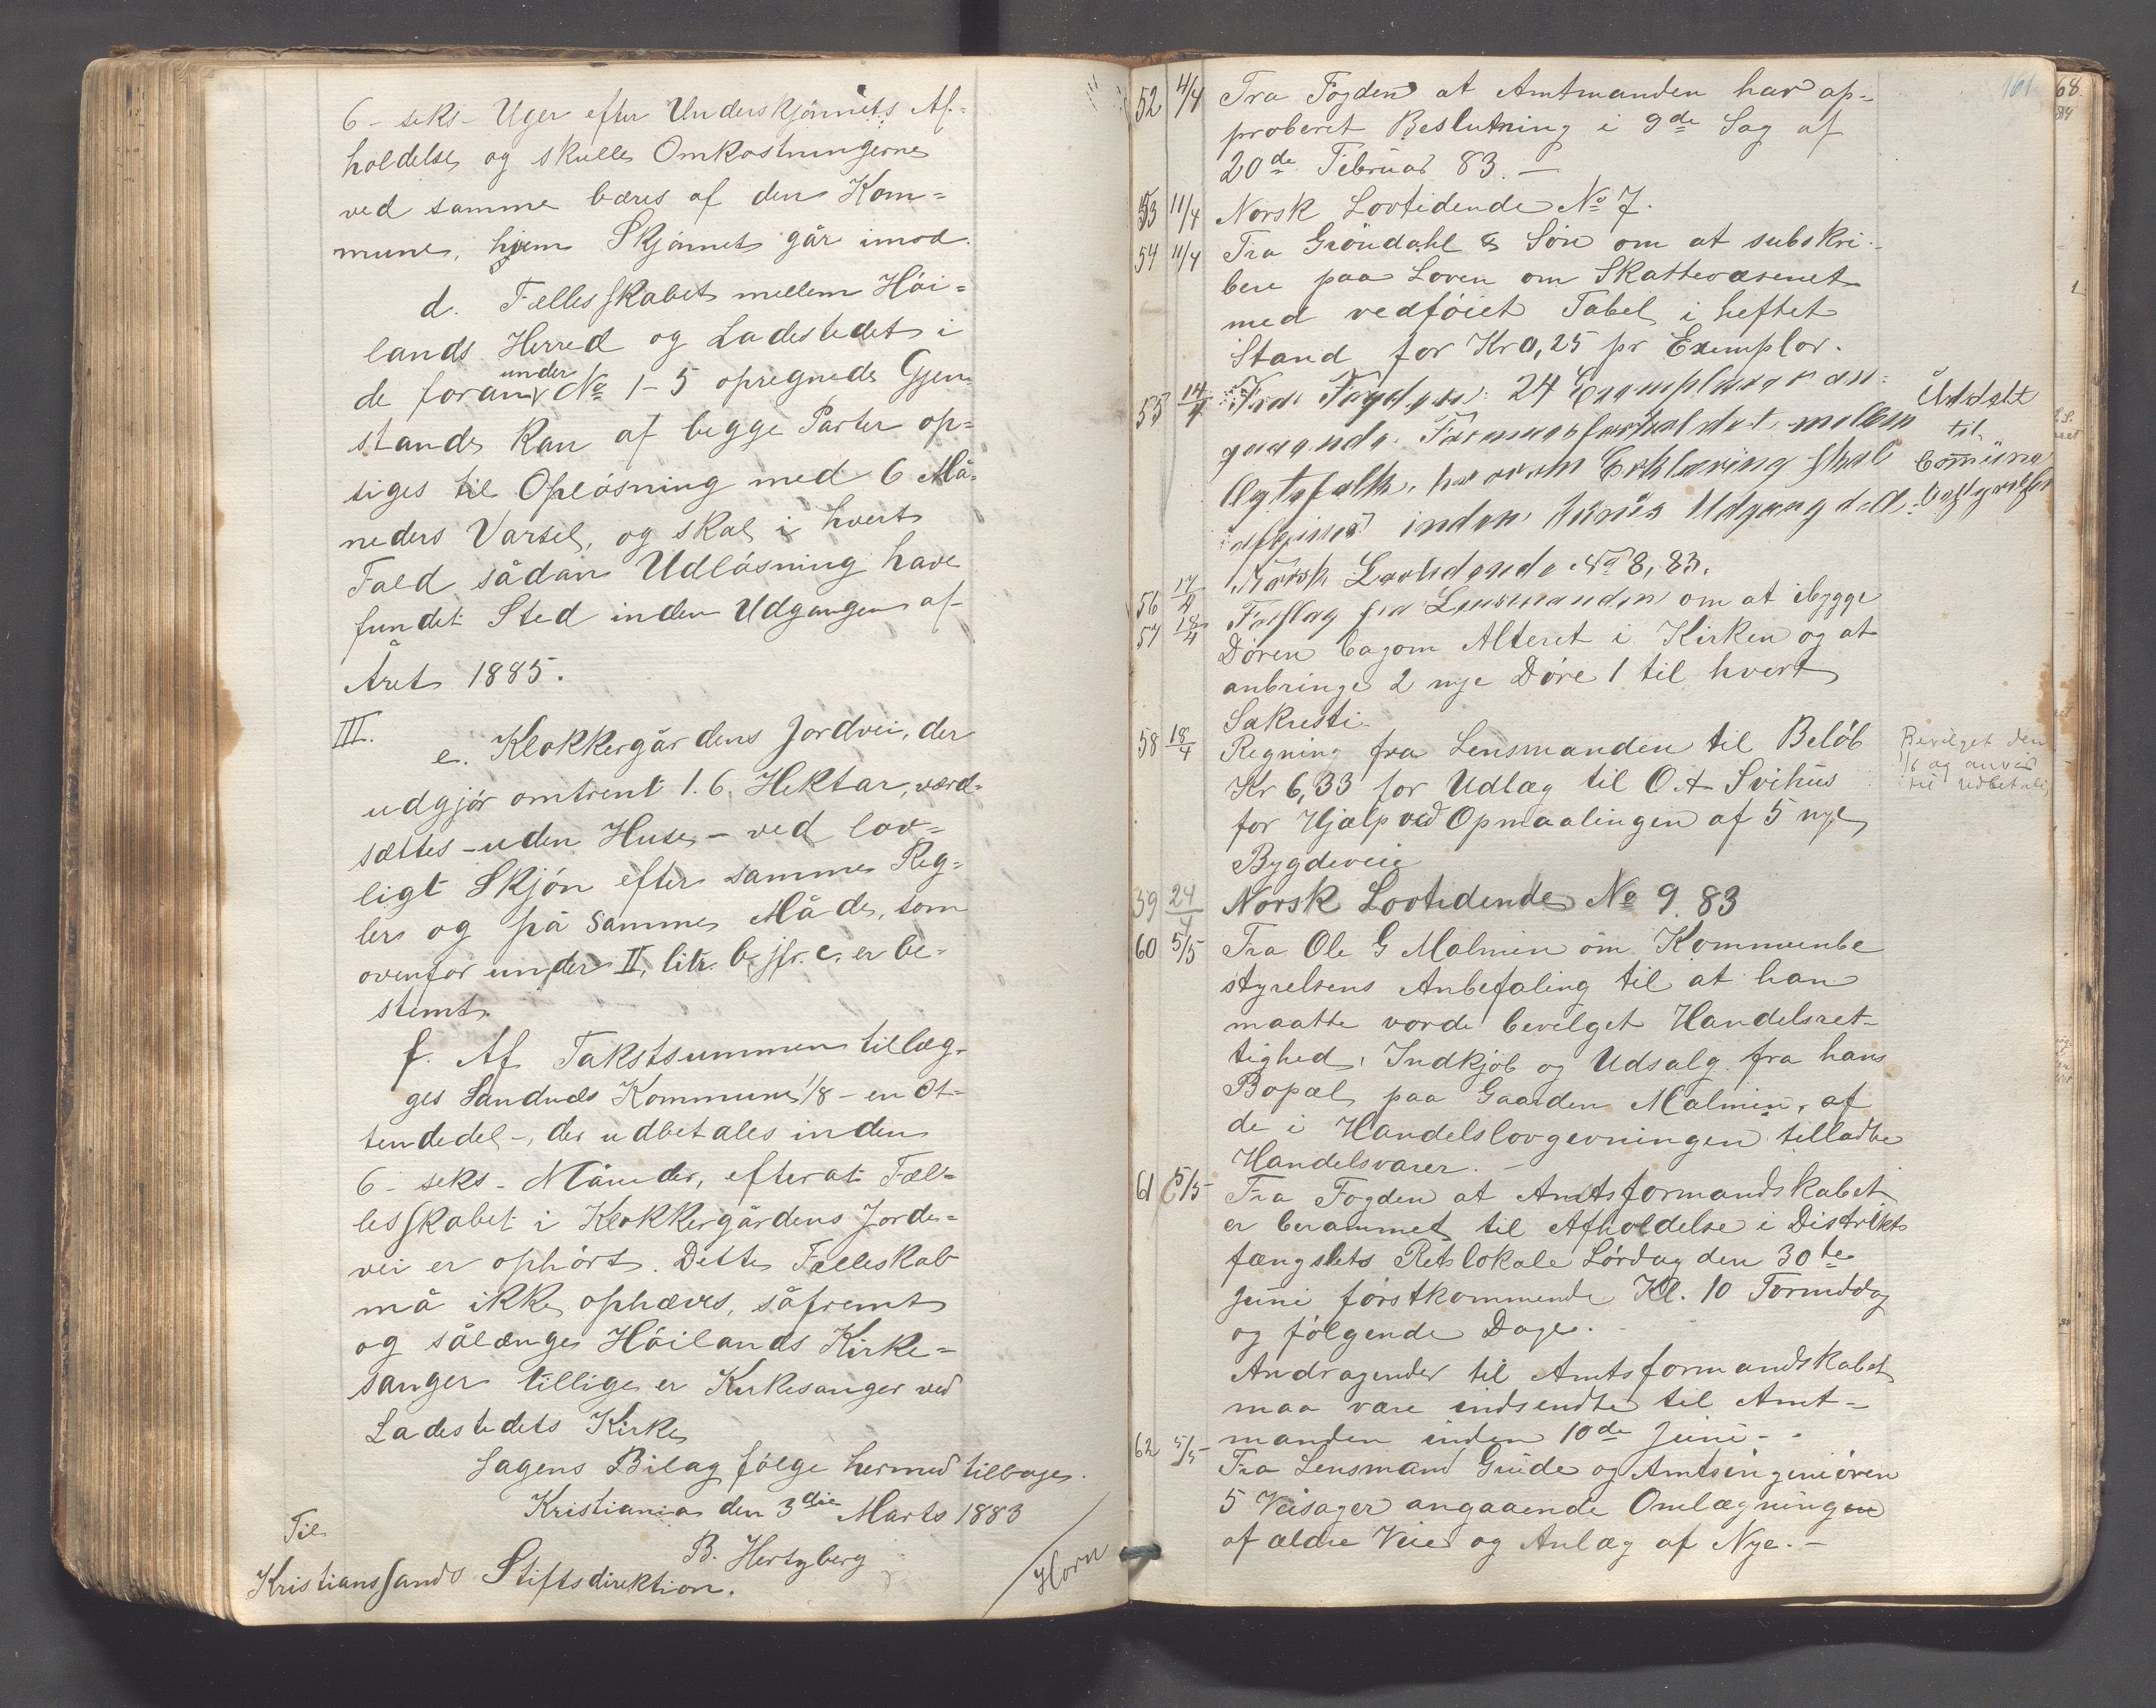 6 - seks - Uger efter Underskjønnets Af-
holdelse og skulle Omkostningerne
ved samme bæres af den Kom-
mune, hvem Skjønnet går imod.
d. Fællesskabet mellem Høi-
lands Herred og Ladestedet i
de foran under No 1-5 opregnede Gjen-
stande kan af begge Parter op-
siges til Opløsning med 6 Må-
neders Varsel, og skal i hvert
Fald sådan Udløsning have
fundet Sted inden Udgangen af
Året 1885.
III.
e. Klokkergårdens Jordvei, der
udgjør omtrent 1.6. Hektar, værd-
sættes - uden Huse - ved lov-
ligt Skjøn efter samme Reg-
lers og på samme Måde, som
ovenfor under II, litr. b, jfr. c, er be-
stemt.
f. Af Takstsummen tillæg-
ges Sandnæs Kommune 1/8 - en Ot-
tendedel -, der udbetales inden
6 - seks - Måneder, efterat Fæl-
lesskabet i Klokkergårdens Jorde-
vei er ophørt. Dette Fælleskab
må ikke ophæves, såfremt
og sålænge Høilands Kirke-
sanger tillige er Kirkesanger ved
Ladestedets Kirke
Sagens Bilag følge hermed tilbage.
Kristiania den 3die Marts 1883
B. Hertzberg
Horn
Til
Kristianssands Stiftsdirektion.
161
52 4/4 Fra Fogden at Amtmanden har ap-
proberet Beslutning i 9de Sag af
20de Februar 83. -
53 11/4 Norsk Lovtidende No 7.
54 11/4 Fra Grøndahl & Søn om at subskri-
bere paa Loven om Skattevæsenet
med vedføiet Tabel i heftet
Stand for Kr 0,25 pr Exemplar.
55 14/4 Fra Fogden: 24 Exemplarer an-
gaaende Formuesforholdet mellem
Ægtefolk, hvorom Erklæring skal
afgives inden Junis Udgang d.A.
Uddelt
til
Comune
bestyrelsen
56 17/4 Norsk Lovtidende No 8, 83.
57 18/4 Forslag fra Lensmanden om at ibygge
Døren bagom Alteret i Kirken og at
anbringe 2 nye Døre 1 til hvert
Sakristi
58 18/4 Regning fra Lensmanden til Beløb
Kr 6,33 for Udlæg til O.A Svihus
for Hjælp ved Opmaalingen af 5 nye
Bygdeveie
Bevilget den
1/6 og anvist
til Udbetaling
59 24/4 Norsk Lovtidende No 9. 83
60 5/5 Fra Ole G Malmin om Kommunbe
styrelsens Anbefaling til at han
maatte vorde bevilget Handelsret-
tighed, Indkjøb og Udsalg fra hans
Bopæl paa Gaarden Malmin, af
de i Handelslovgivningen tilladte
Handelsvarer. -
61 5/5 Fra Fogden at Amtsformandskabet
er berammet til Afholdelse i Distrikts
fængslets Retslokale Lørdag den 30te
Juni førstkommende Kl. 10 Formiddag
og følgende Dage.
Andragender til Amtsformandskabet
maa være indsendte til Amt-
manden inden 10de Juni -
62 5/5 Fra Lensmand Gude og Amtsingeniøren
5 Veisager angaaende Omlægningen
af ældre Veie og Anlæg af Nye. -
68